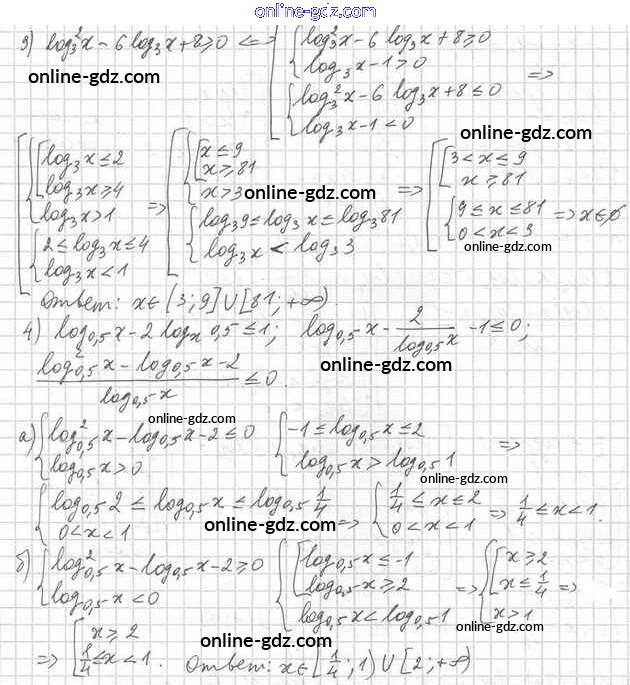 online-gdz.com
3) log₃²x - 6 log₃x + 8 ⩾ 0 <=> [ { log₃²x - 6 log₃x + 8 ⩾ 0
log₃x - 1 > 0
online-gdz.com
{ log₃²x - 6 log₃x + 8 ≤ 0 =>
log₃x - 1 < 0
online-gdz.com
[ { [ log₃x ≤ 2
log₃x ⩾ 4
log₃x > 1
{ 2 ≤ log₃x ≤ 4
log₃x < 1
=> [ { [ x ≤ 9
x ⩾ 81
x > 3
online-gdz.com
{ log₃9 ≤ log₃x ≤ log₃81
log₃x < log₃3
=> [ [ 3 < x ≤ 9
x ⩾ 81
{ 9 ≤ x ≤ 81 => x ∈ ∅
0 < x < 3
online-gdz.com
Ответ: x ∈ (3; 9] ∪ [81; +∞)
online-gdz.com
4) log₀,₅x - 2 logₓ0,5 ≤ 1; log₀,₅x - 2/log₀,₅x - 1 ≤ 0;
(log²₀,₅x - log₀,₅x - 2)/log₀,₅x ≤ 0.
online-gdz.com
online-gdz.com
а) { log²₀,₅x - log₀,₅x - 2 ≤ 0 { -1 ≤ log₀,₅x ≤ 2 =>
log₀,₅x > 0 log₀,₅x > log₀,₅1
online-gdz.com
{ log₀,₅2 ≤ log₀,₅x ≤ log₀,₅ 1/4 => { 1/4 ≤ x ≤ 2 => 1/4 ≤ x < 1.
0 < x < 1 0 < x < 1
online-gdz.com
online-gdz.com
б) { log²₀,₅x - log₀,₅x - 2 ⩾ 0 { [ log₀,₅x ≤ -1
log₀,₅x < 0 log₀,₅x ⩾ 2
log₀,₅x < log₀,₅1
=> { [ x ⩾ 2
x ≤ 1/4 =>
x > 1
online-gdz.com
online-gdz.com
=> [ x ⩾ 2
1/4 ≤ x < 1. Ответ: x ∈ [1/4; 1) ∪ [2; +∞)
online-gdz.com